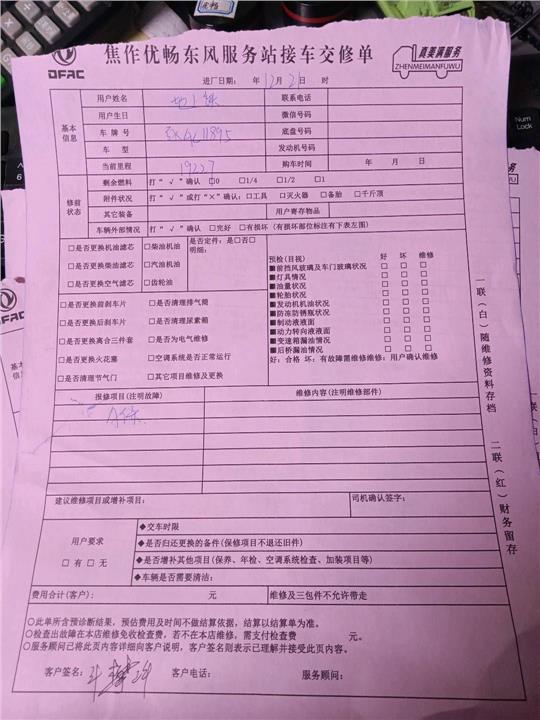 DFAC
焦作优畅东风服务站接车交修单
真美满服务
ZHENMEIMANFUWU
进厂日期： 年 12月 2日 时
基本信息
用户姓名 地上铁 联系电话
用户生日 微信号码
车牌号 底盘号码
车型 发动机号码
当前里程 19227 购车时间 年 月 日
修前状态
剩余燃料 打“√”确认 □0 □1/4 □1/2 □1
附件状况 打“√”或打“×”确认：□工具 □灭火器 □备胎 □千斤顶
其它装备 用户寄存物品
车辆外部情况 打“√”确认 □完好 □有损坏（有损坏部位标注有下表左图）
□是否更换机油滤芯 □柴油机油
□是否更换柴油滤芯 □汽油机油
□是否更换空气滤芯 □齿轮油
是否定件：是□否□
明细：
□是否更换前刹车片 □是否清理排气筒
□是否更换后刹车片 □是否清理尿素箱
□是否更换离合三件套 □是否为电气维修
□是否更换火花塞 □空调系统是否正常运行
□是否清理节气门 □其它项目维修及更换
预检(目视) 好 坏 维修
■前挡风玻璃及车门玻璃状况 □ □ □
■灯具情况 □ □ □
■油量状况 □ □ □
■轮胎状况 □ □ □
■发动机机油状况 □ □ □
■防冻防锈瓶状况 □ □ □
■制动液液面 □ □ □
■动力转向液液面 □ □ □
■变速箱漏油情况 □ □ □
■后桥漏油情况 □ □ □
好：合格 坏：有故障需维修维修：用户确认维修
报修项目（注明故障） 维修内容(注明维修部件)
A保
建议维修项目或增补项目： 司机确认签字：
用户要求
□有 □无
◆交车时限
◆是否归还更换的备件(保修项目不退还旧件)
◆是否增补其他项目(保养、年检、空调系统检查、加装项目等)
◆车辆是否需要清洁：
费用合计(客户)： 元 维修及三包件不允许带走
○此单所含预诊断结果，预估费用及时间不做结算依据，结算以结算单为准。
○检查出故障在本店维修免收检查费，若不在本店维修，需支付检查费 元。
○服务顾问已将此页内容详细向客户说明，客户签名则表示已理解并接受此页内容。
客户签名： 客户电话： 服务顾问：
一联（白）随维修资料存档 二联（红）财务留存
Num
Lock